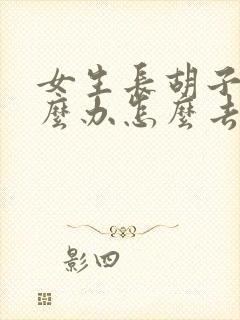 女生長胡子
麼办怎麼去
影四